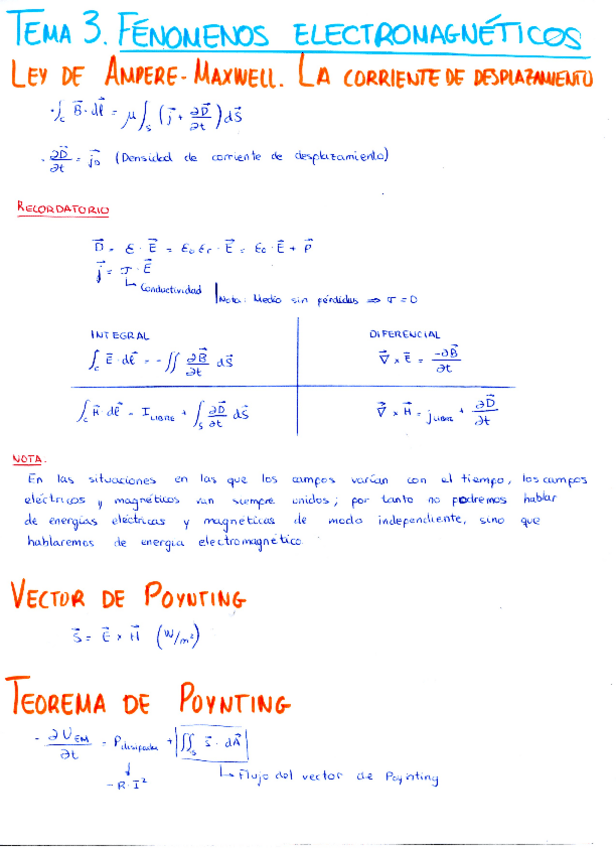 TEMA 3. FÉNOMENOS ELECTROMAGNÉTICOS
LEY DE AMPERE-MAXWELL. LA CORRIENTE DE DESPLAZAMIENTO
· ∫_C B⃗ · dl⃗ = μ ∫_S (j⃗ + ∂D⃗/∂t) dS⃗
· ∂D⃗/∂t = j⃗_D (Densidad de corriente de desplazamiento)
RECORDATORIO
D⃗ = ε · E⃗ = ε₀ εr · E⃗ = ε₀ · E⃗ + P⃗
j⃗ = σ · E⃗
↳ Conductividad | Nota: Medio sin pérdidas ⇒ σ = 0
INTEGRAL DIFERENCIAL
∫_C E⃗ · dl⃗ = - ∬ ∂B⃗/∂t dS⃗ ∇⃗ × E⃗ = -∂B⃗/∂t
∫_C H⃗ · dl⃗ = I_LIBRE + ∫_S ∂D⃗/∂t dS⃗ ∇⃗ × H⃗ = j_LIBRE + ∂D⃗/∂t
NOTA.
En las situaciones en las que los campos varían con el tiempo, los campos
eléctricos y magnéticos van siempre unidos; por tanto no podremos hablar
de energías eléctricas y magnéticas de modo independiente, sino que
hablaremos de energía electromagnético.
VECTOR DE POYNTING
S⃗ = E⃗ × H⃗ (W/m²)
TEOREMA DE POYNTING
- ∂U_EM/∂t = P_disipada + ∬_S S⃗ · dA⃗
↓
-R·I² ↳ Flujo del vector de Poynting